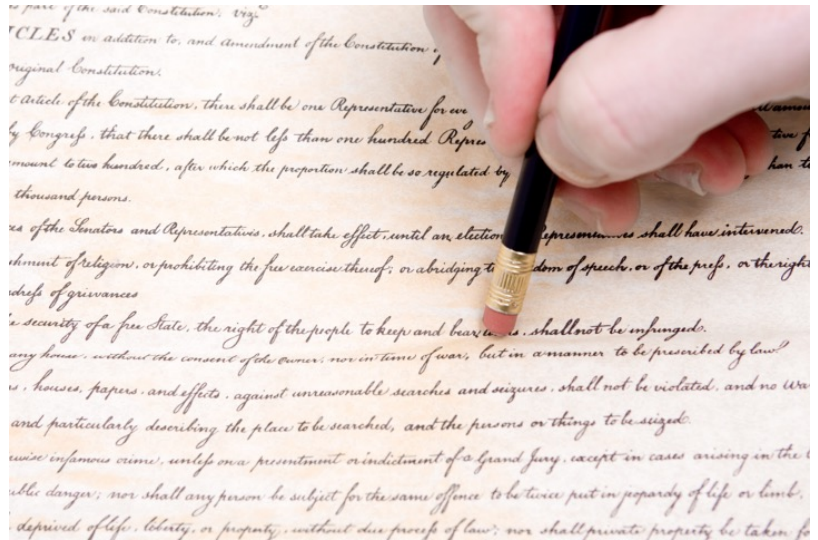 s part of the said Constitution; viz.
ICLES in addition to, and Amendment of the Constitution
original Constitution.
t Article of the Constitution, there shall be one Representative for eve
by Congreſs, that there shall be not leſs than one hundred Repres tive f
amount to two hundred, after which the proportion shall be so regulated by han t
thousand persons.
es of the Senators and Representatives, shall take effect, until an election Representatives shall have intervened.
shment of religion, or prohibiting the free exercise thereof; or abridging t dom of speech, or of the preſs, or the right
dreſs of grievances
e security of a free State, the right of the people to keep and bear s, shall not be infringed.
any house, without the consent of the owner, nor in time of war, but in a manner to be prescribed by law.
s, houses, papers, and effects, against unreasonable searches and seizures, shall not be violated, and no Wa
and particularly describing the place to be searched, and the persons or things to be seized.
rwise infamous crime, unleſs on a presentment or indictment of a Grand Jury, except in cases arising in the
ublic danger; nor shall any person be subject for the same offence to be twice put in jeopardy of life or limb,
deprived of life, liberty, or property, without due proceſs of law; nor shall private property be taken fo